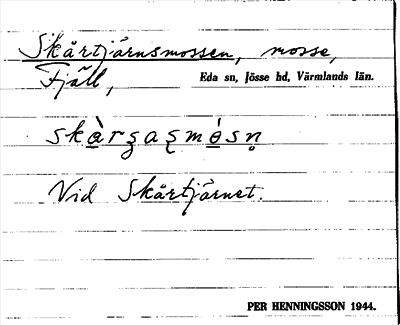 Skårtjärnsmossen, mosse,
Fjäll,
Eda sn, Jösse hd, Värmlands län.
Vid Skårtjärnet.
PER HENNINGSSON 1944.